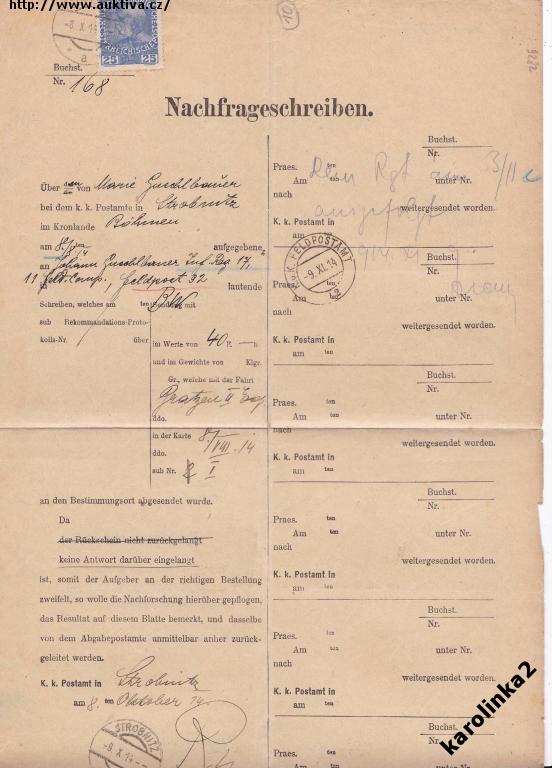 http://www.auktiva.cz/
-8. X 14
a
25 25
10
9272
Buchst.
Nr. 168
Nachfrageschreiben.
Über den von Marie Guschlbauer
bei dem k. k. Postamte in Strobnitz
im Kronlande Böhmen
am 8/8 ten 14 aufgegebene
an Johann Guschlbauer Inf. Reg 17,
11 Feld Comp, Feldpost 32 lautende
Schreiben, welches am ten Sendung mit
sub Rekommandations-Proto-
kolls-Nr. über
im Werte von 40 K — h
und im Gewichte von Klgr.
Gr., welche mit der Fahrt
Gratzen II
ddo.
in der Karte 8/VIII. 14
ddo.
sub Nr. I
an den Bestimmungsort abgesendet wurde.
Da
der Rückschein nicht zurückgelangt
keine Antwort darüber eingelangt
ist, somit der Aufgeber an der richtigen Bestellung
zweifelt, so wolle die Nachforschung hierüber gepflogen,
das Resultat auf diesem Blatte bemerkt, und dasselbe
von dem Abgabepostamte unmittelbar anher zurück-
geleitet werden.
K. k. Postamt in Strobnitz
am 8. ten Oktober 14
STROBNITZ
-8. X 14
Buchst.
Nr.
Praes. ten
Am unter Nr.
nach
weitergesendet worden.
K. k. Postamt in
am ten
Dem Rgt am 3/11
ausgefolgt
K.u.K. FELDPOSTAMT
-9. XI. 14
Buchst.
Nr.
Praes. ten
Am unter Nr.
nach
weitergesendet worden.
K. k. Postamt in
am ten
Buchst.
Nr.
Praes. ten
Am ten unter Nr.
nach
weitergesendet worden.
K. k. Postamt in
am ten
Buchst.
Nr.
Praes. ten
Am ten unter Nr.
nach
weitergesendet worden.
K. k. Postamt in
am ten
Buchst.
Nr.
Praes. ten
Am ten unter Nr.
nach
weitergesendet worden.
K. k. Postamt in
am ten
Buchst.
Nr.
Praes. ten
karolinka2